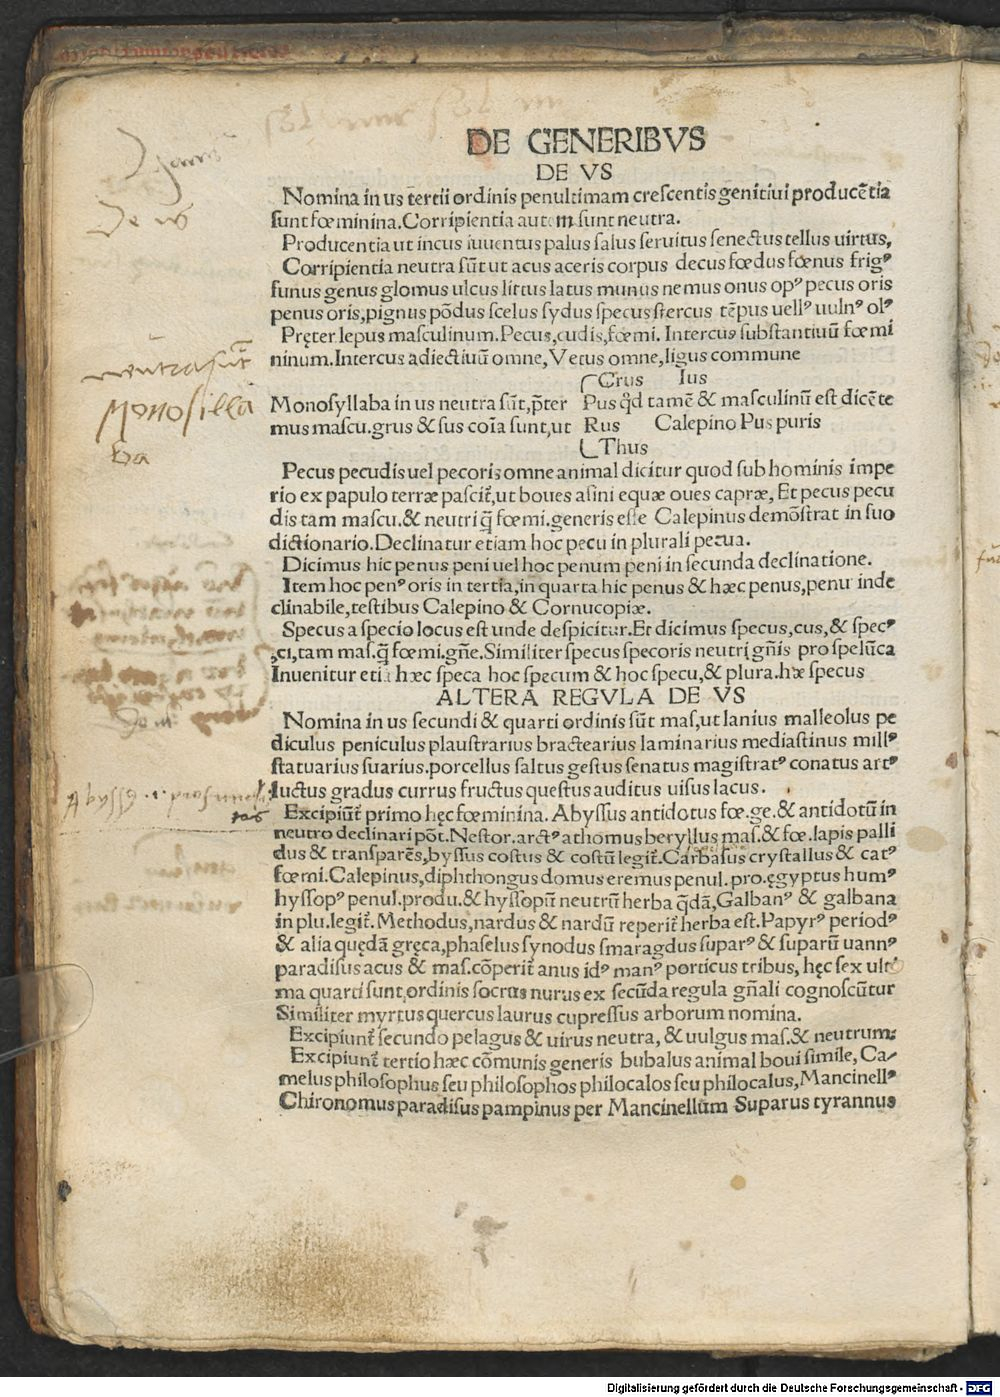 DE GENERIBVS
DE VS
Nomina in us tertii ordinis penultimam crescentis genitiui producẽtia
sunt fœminina. Corripientia autem sunt neutra.
Producentia ut incus iuuentus palus salus seruitus senectus tellus uirtus,
Corripientia neutra sũt ut acus aceris corpus decus fœdus fœnus frigꝰ
funus genus glomus ulcus littus latus munus nemus onus opꝰ pecus oris
penus oris, pignus põdus scelus sydus specus stercus tẽpus uellꝰ uulnꝰ olꝰ
Pręter lepus masculinum. Pecus, cudis, fœmi. Intercus substantiuũ fœmi
ninum. Intercus adiectiuũ omne, Vetus omne, ligus commune
Crus Ius
Monosyllaba in us neutra sũt, p̃ter Pus qd̃ tamẽ & masculinũ est dicẽte
mus mascu. grus & sus coĩa sunt, ut Rus Calepino Pus puris
Thus
Pecus pecudis uel pecoris omne animal dicitur quod sub hominis impe
rio ex papulo terræ pascit̃, ut boues asini equæ oues capræ, Et pecus pecu
dis tam mascu. & neutri q̃ fœmi. generis esse Calepinus demõstrat in suo
dictionario. Declinatur etiam hoc pecu in plurali pecua.
Dicimus hic penus peni uel hoc penum peni in secunda declinatione.
Item hoc penꝰ oris in tertia, in quarta hic penus & hæc penus, penu inde
clinabile, testibus Calepino & Cornucopiæ.
Specus a specio locus est unde despicitur. Et dicimus specus, cus, & specꝰ
,ci, tam mas. q̃ fœmi. gñe. Similiter specus specoris neutri gñis pro spelũca
Inuenitur etiã hæc speca hoc specum & hoc specu, & plura. hæ specus
ALTERA REGVLA DE VS
Nomina in us secundi & quarti ordinis sũt mas, ut lanius malleolus pe
diculus peniculus plaustrarius bractearius laminarius mediastinus millꝰ
statuarius suarius. porcellus saltus gestus senatus magistratꝰ conatus artꝰ
luctus gradus currus fructus questus auditus uisus lacus.
Excipiũt̃ primo hęc fœminina. Abyssus antidotus fœ. ge. & antidotũ in
neutro declinari põt. Nestor. arctꝰ athomus beryllus mas. & fœ. lapis palli
dus & transparẽs, byssus costus & costũ legit̃. Carbasus crystallus & catꝰ
fœmi. Calepinus, diphthongus domus eremus penul. pro. ęgyptus humꝰ
hyssopꝰ penul. produ. & hyssopũ neutrũ herba qdã, Galbanꝰ & galbana
in plu. legit̃. Methodus, nardus & nardũ reperit̃ herba est. Papyrꝰ periodꝰ
& alia quędã gręca, phaselus synodus smaragdus suparꝰ & suparũ uannꝰ
paradisus acus & mas. cõperit̃ anus idꝰ manꝰ porticus tribus, hęc sex ulti
ma quarti sunt, ordinis socrus nurus ex secũda regula gñali cognoscũtur
Similiter myrtus quercus laurus cupressus arborum nomina.
Excipiunt̃ secundo pelagus & uirus neutra, & uulgus mas. & neutrum:
Excipiunt̃ tertio hæc cõmunis generis bubalus animal boui simile, Ca⸗
melus philosophus seu philosophos philocalos seu philocalus, Mancinellꝰ
Chironomus paradisus pampinus per Mancinellum Suparus tyrannus
De us
neutra sũt
Monosilla
ba
Digitalisierung gefördert durch die Deutsche Forschungsgemeinschaft - DFG